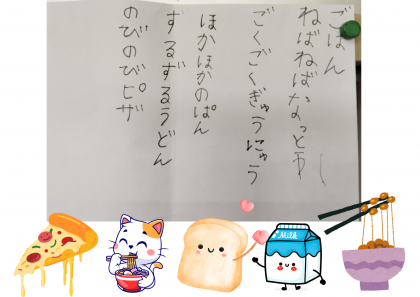 ごはん
ねばねばなっとう
ごくごくぎゅうにゅう
ほかほかのぱん
ずるずるうどん
のびのびピザ
Milk